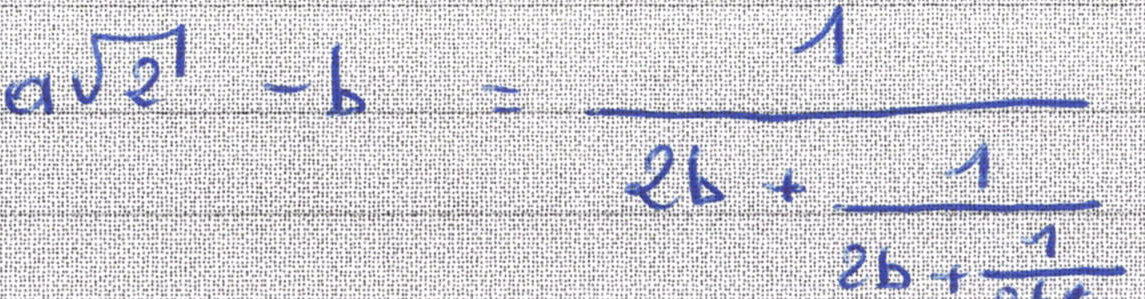 a√2 - b = 1 / (2b + 1 / (2b + 1 /